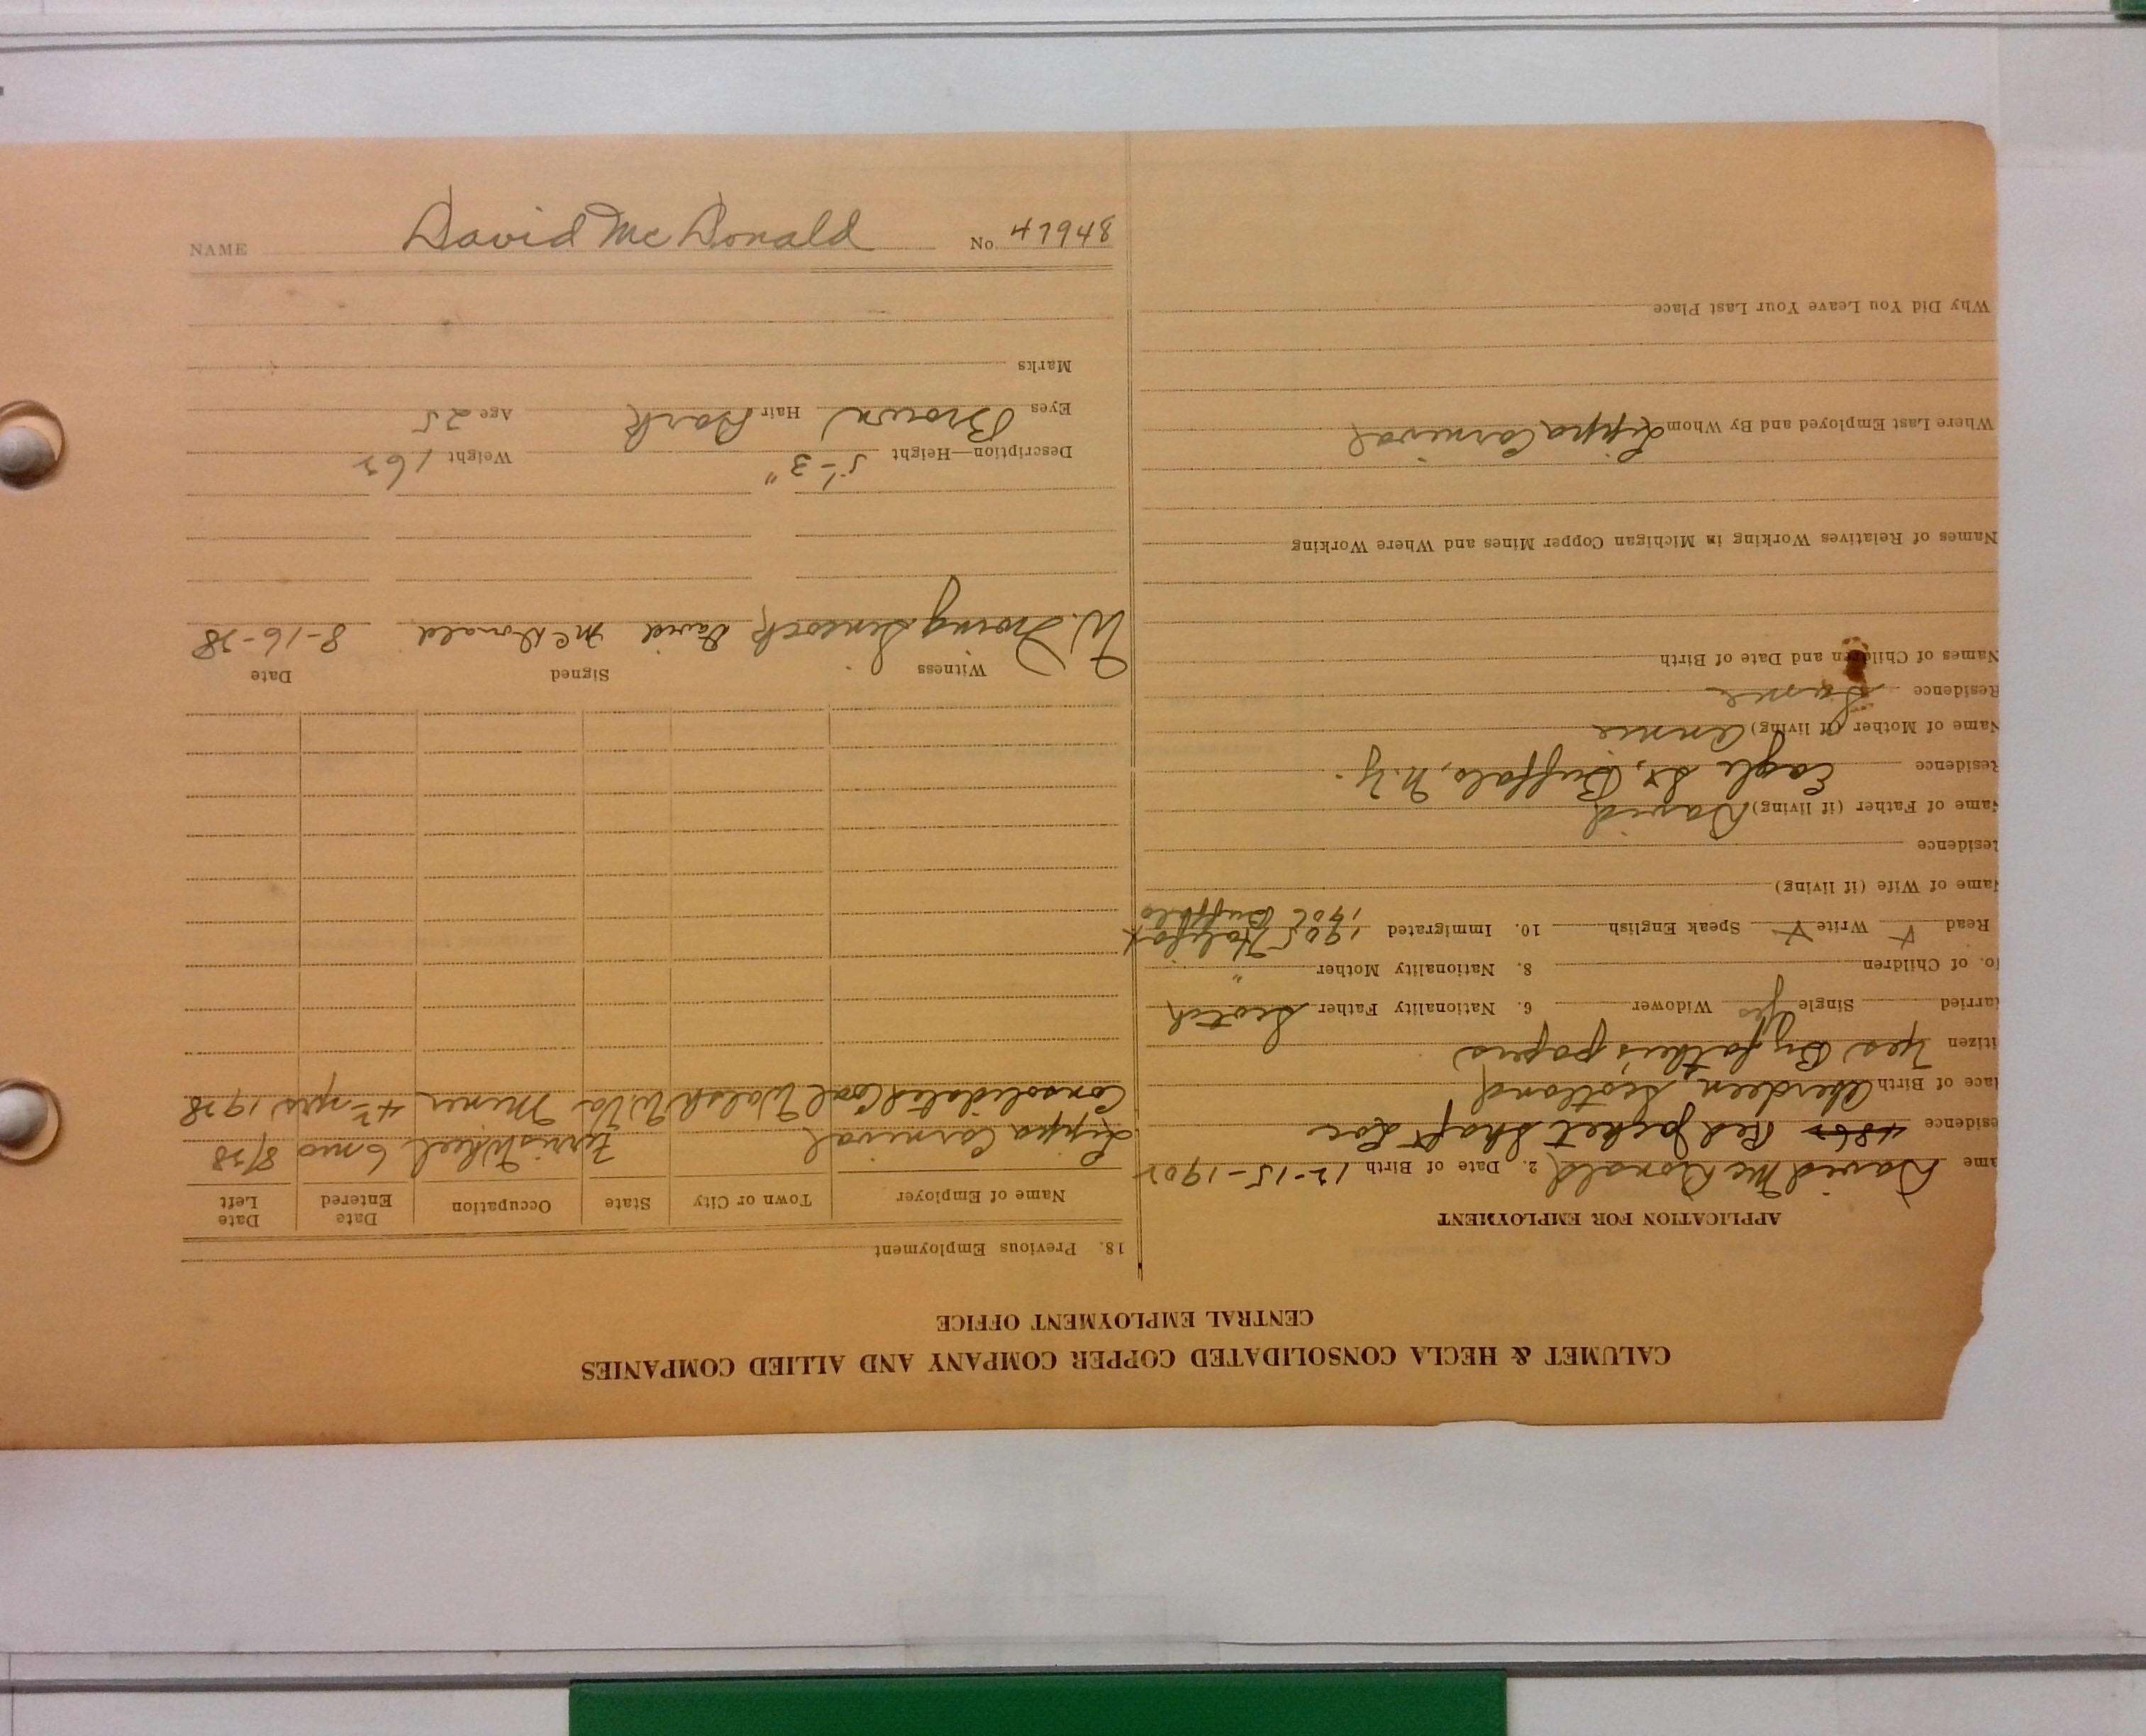 NAME David McDonald No. 47948
CALUMET & HECLA CONSOLIDATED COPPER COMPANY AND ALLIED COMPANIES
CENTRAL EMPLOYMENT OFFICE
APPLICATION FOR EMPLOYMENT
ame David McDonald 2. Date of Birth 12-15-1902
esidence 4862 Red Jacket Shaft Loc
lace of Birth Aberdeen, Scotland
itizen Yes By father's papers
arried Single Yes Widower 6. Nationality Father Scotch
o. of Children 8. Nationality Mother "
Read Write Speak English 10. Immigrated 1905 Halifax
1906 Buffalo
Name of Wife (if living)
Residence
Name of Father (if living) David
Residence Eagle St, Buffalo, N.Y.
Name of Mother (if living) Annie
Residence Same
Names of Children and Date of Birth
Names of Relatives Working in Michigan Copper Mines and Where Working
Where Last Employed and By Whom Lippa Carnival
Why Did You Leave Your Last Place
18. Previous Employment
Name of Employer Town or City State Occupation Date Entered Date Left
Lippa Carnival Ferris Wheel 6 mo 8/28
Consolidated Coal Walsh W. Va Miner 4 yrs 1928
Witness Signed Date
W. Irving Simcock David McDonald 8-16-28
Description—Height 5'-3" Weight 162
Eyes Brown Hair Dark Age 25
Marks